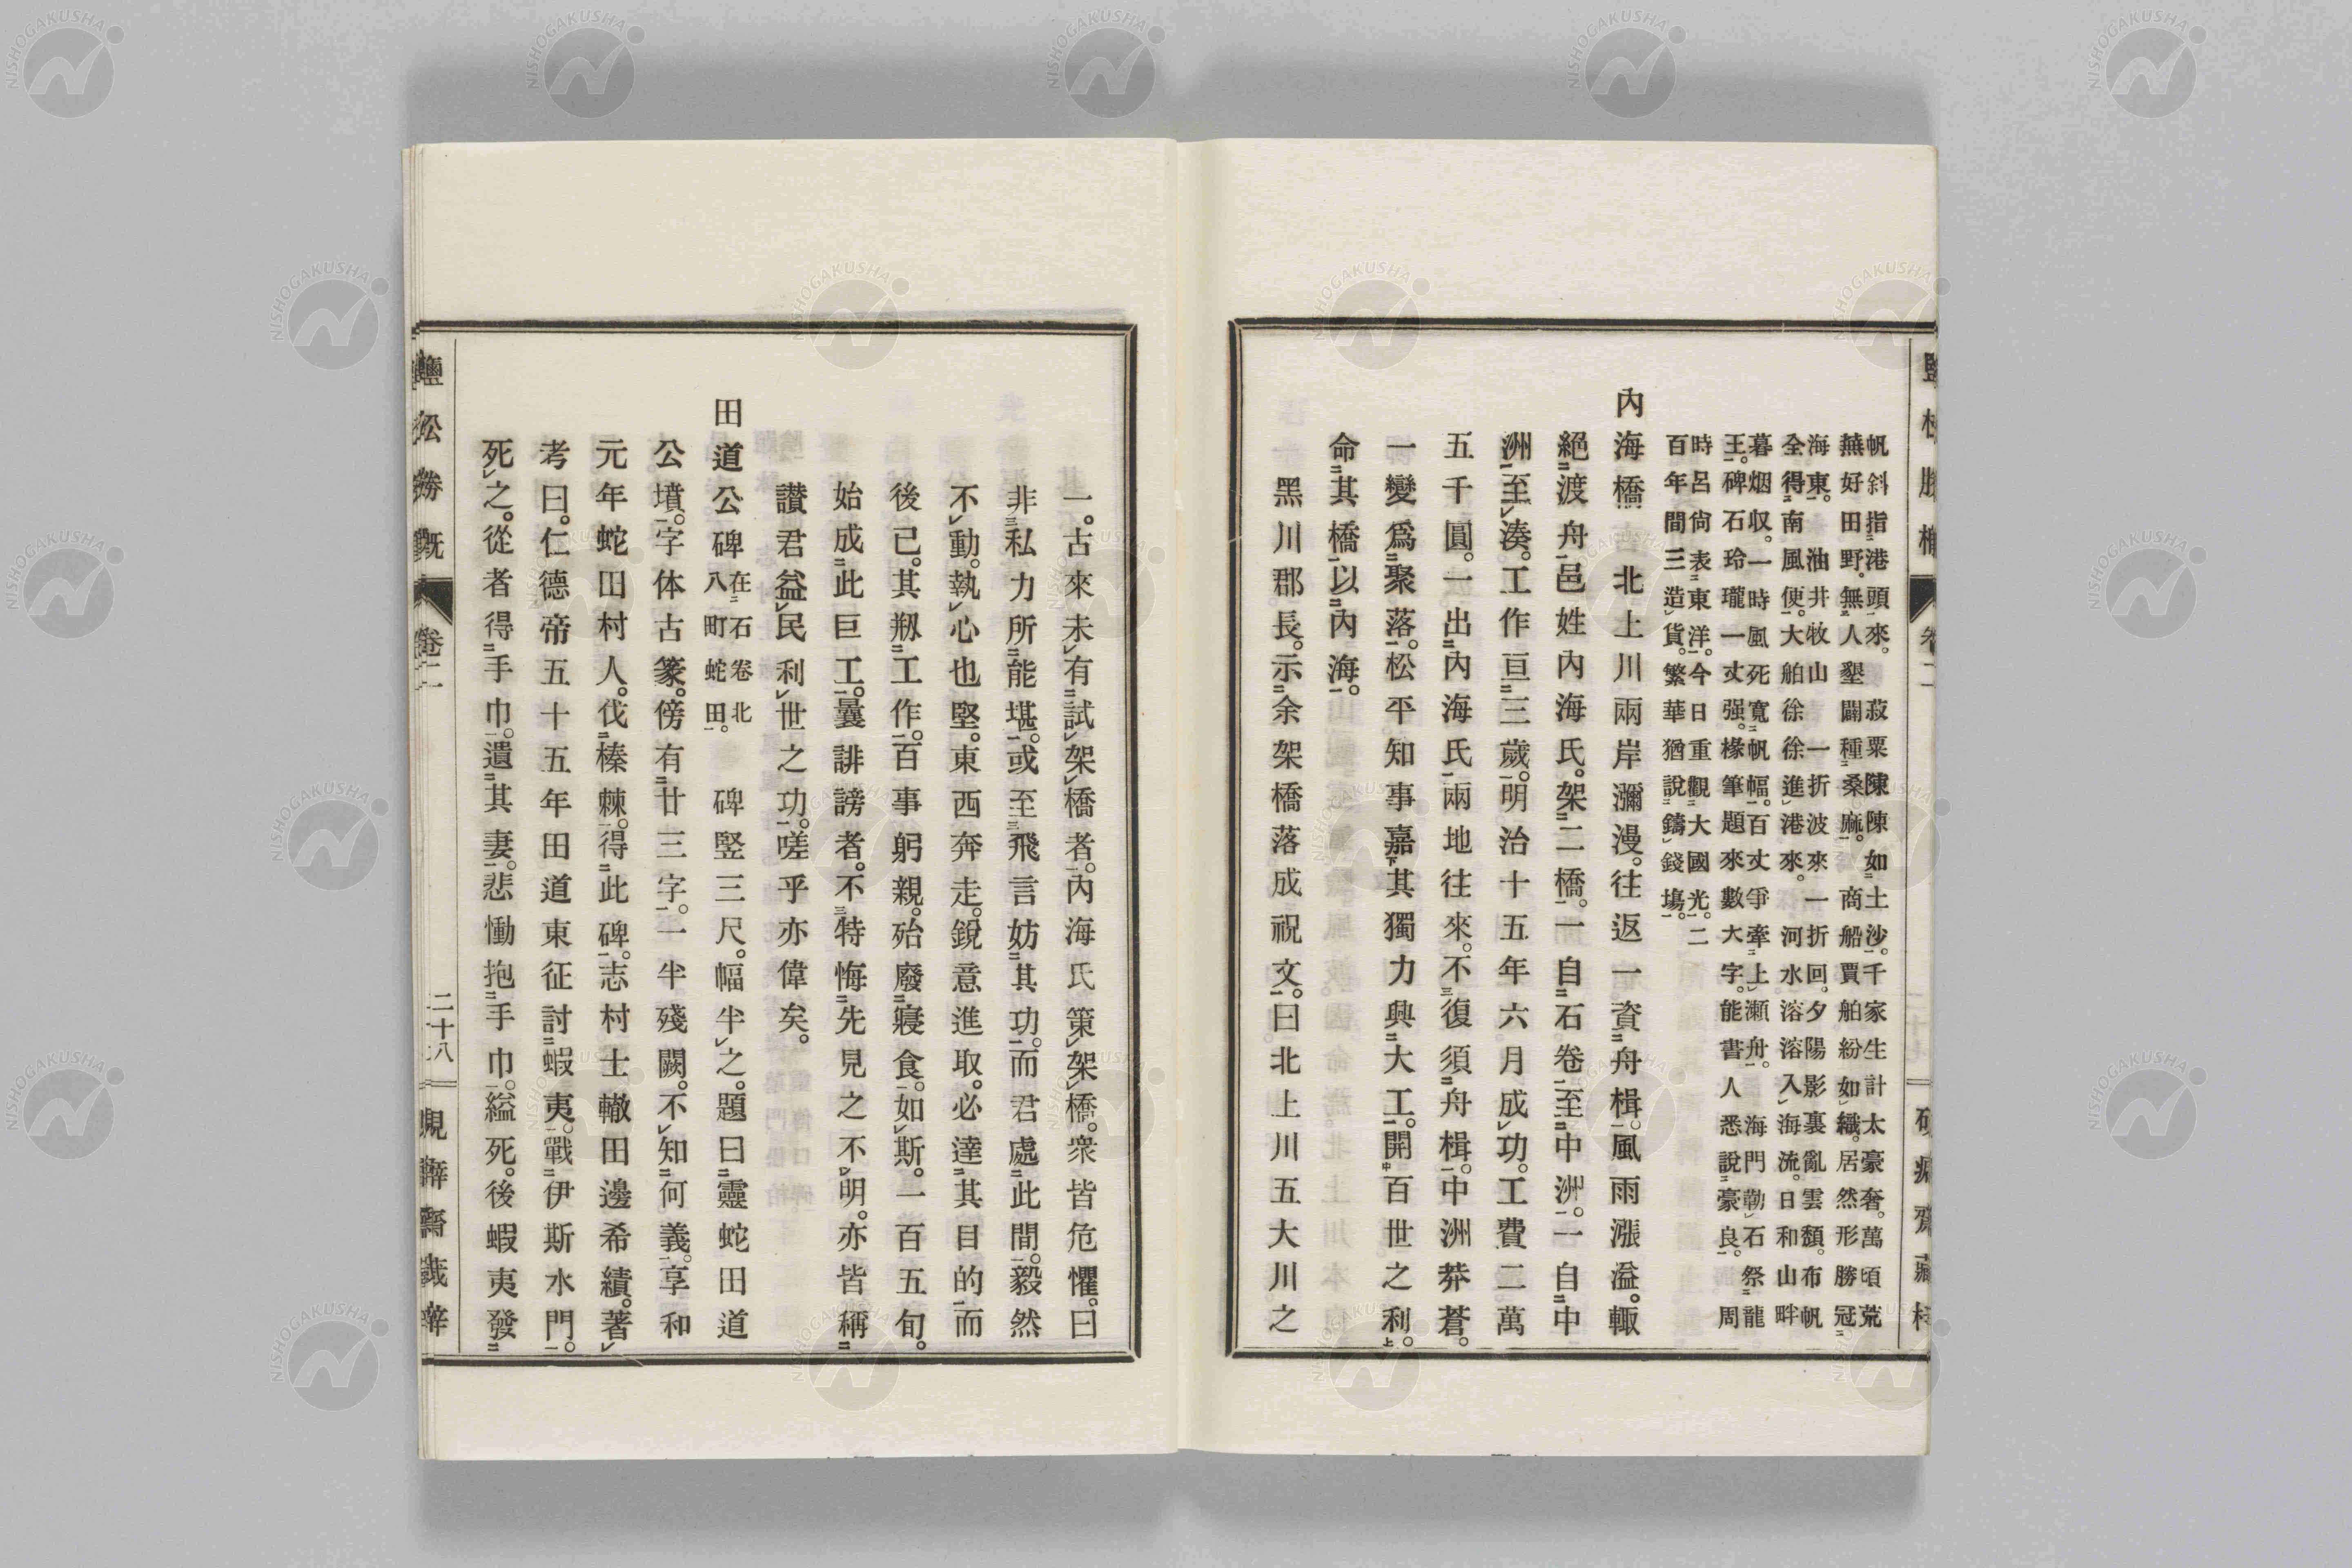 帆斜指港頭來。　菽粟陳陳如土沙。千家生計太豪奢。萬頃荒
蕪好田野。無人墾闢種桑麻。　商船賈舶紛如織。居然形勝冠
海東。　油井牧山一折波來一折回。夕陽影裏亂雲頹。布帆
全得南風便。大舶徐徐進港來。　河水溶溶入海流。日和山畔
暮烟收。一時風死寬帆幅。百丈爭牽上瀬舟。　海門勒石祭龍
王。碑石玲瓏一丈强。椽筆題來數大字。能書人悉說豪良。　周
時呂尙表東洋。今日重觀大國光。二
百年間三造貨。繁華猶說鑄錢塲。
內海橋　北上川兩岸瀰漫。往返一資舟楫。風雨漲溢。輙
絕渡舟邑姓內海氏。架二橋。一自石卷至中洲。一自中
洲至湊。工作亘三歲。明治十五年六月成功。工費二萬
五千圓。一出內海氏兩地往來。不復須舟楫。中洲莽蒼。
一變爲聚落。松平知事嘉其獨力興大工。開百世之利。
命其橋以內海。
黑川郡長。示余架橋落成祝文。曰北上川五大川之
一。古來未有試架橋者。內海氏策架橋。衆皆危懼。曰
非私力所能堪。或至飛言妨其功。而君處此間。毅然
不動。執心也堅。東西奔走。銳意進取。必達其目的而
後已。其剏工作。百事躬親。殆廢寢食。如斯。一百五旬。
始成此巨工。曩誹謗者。不特悔先見之不明。亦皆稱
讚君益民利世之功。嗟乎亦偉矣。
田道公碑在石卷北
八町蛇田。　碑竪三尺。幅半之。題曰靈蛇田道
公墳。字体古篆。傍有廿三字。一半殘闕。不知何義。享和
元年蛇田村人。伐榛棘。得此碑。志村士轍田邊希績。著
考曰。仁德帝五十五年田道東征討蝦夷。戰伊斯水門。
死之。從者得手巾。遺其妻。悲慟抱手巾。縊死。後蝦夷發
鹽松勝概　卷二　二十八　硯癖齋藏梓
NISHOGAKUSHA